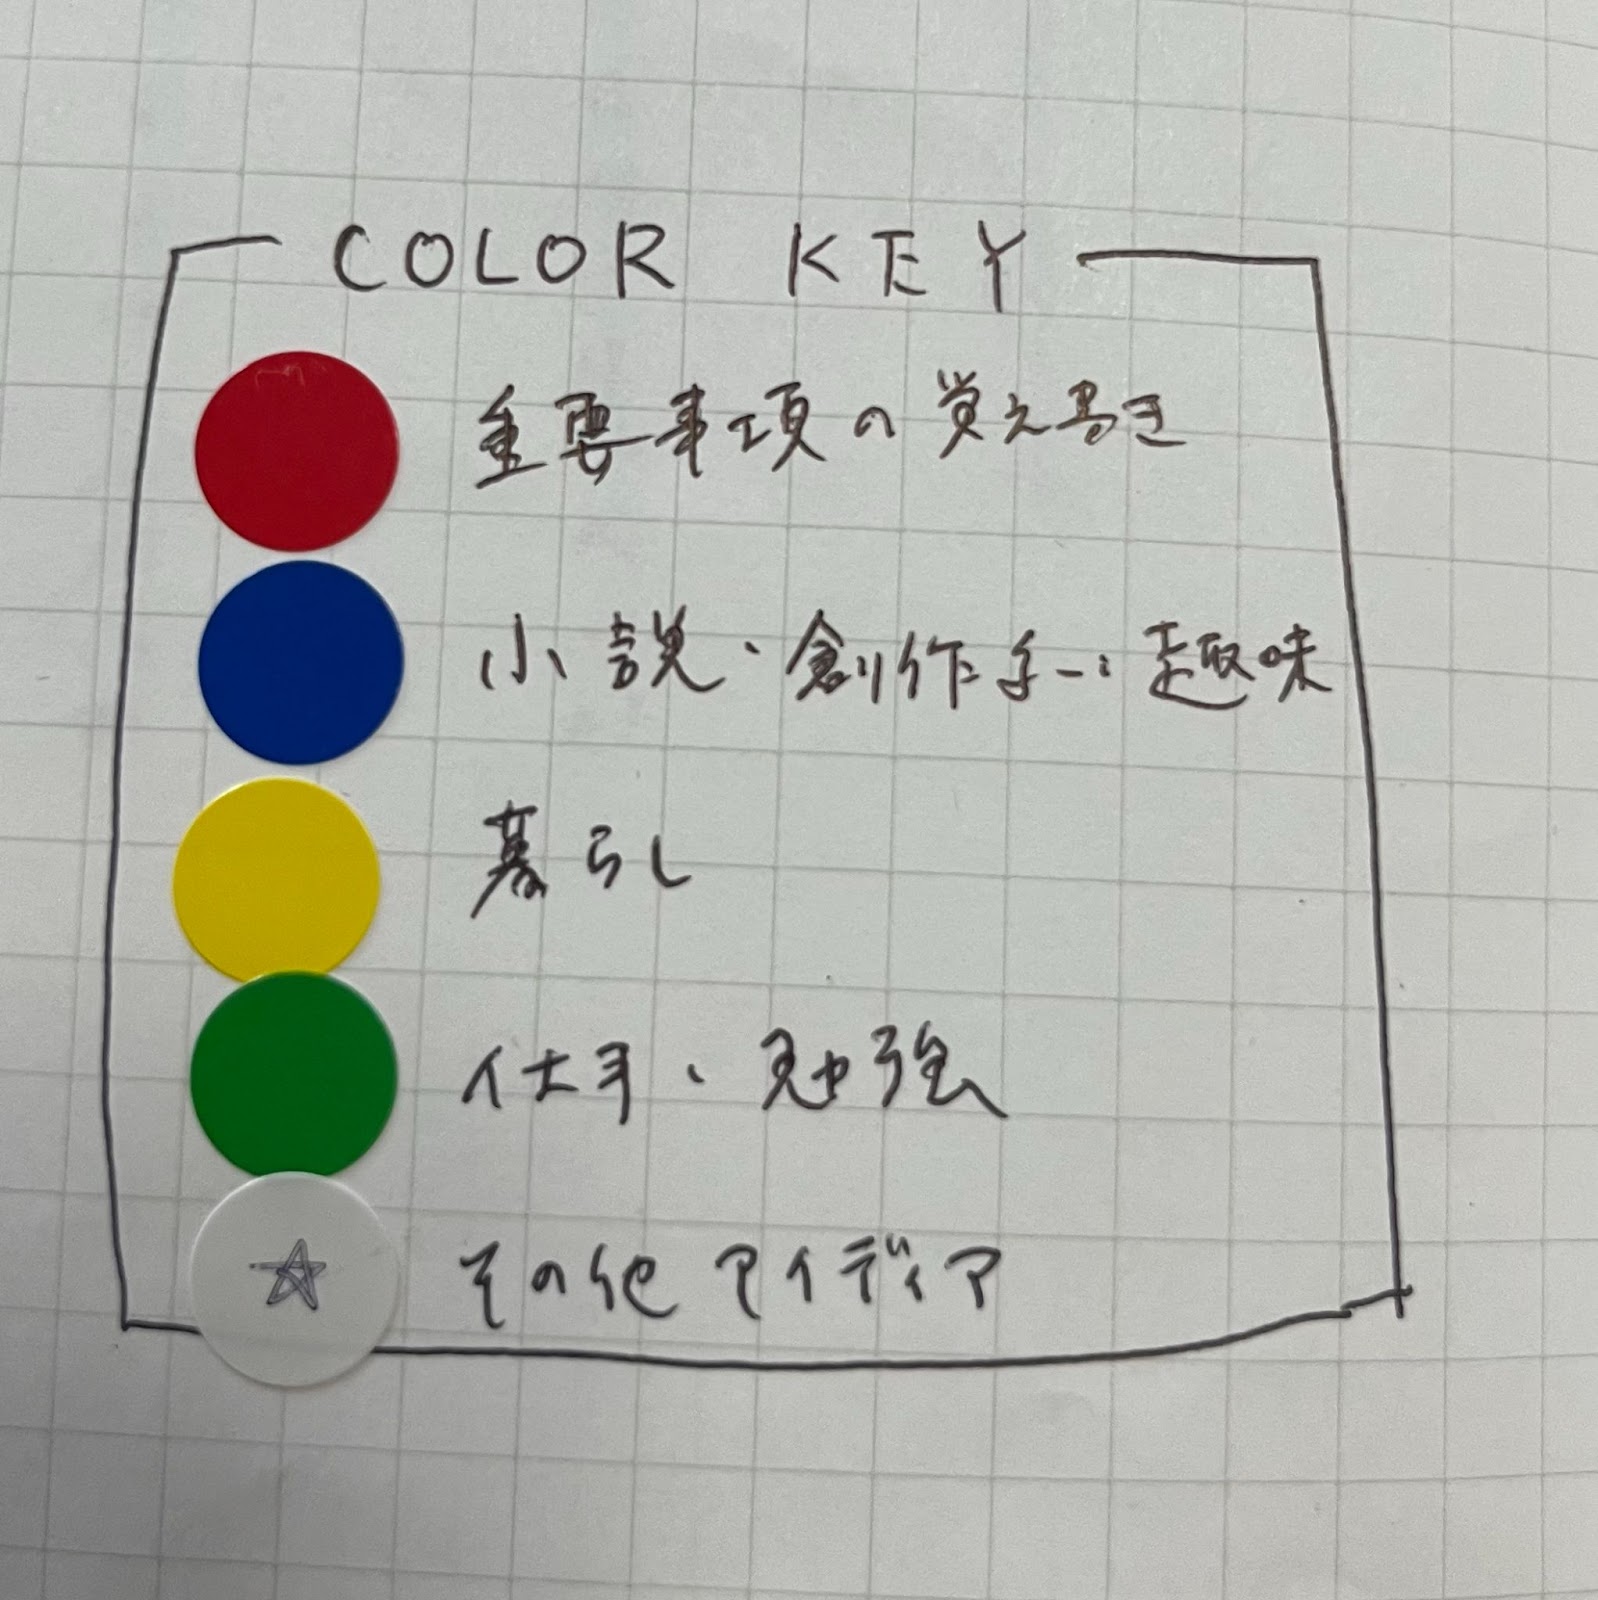 COLOR KEY
重要事項の覚え書き
小説・創作ネタ・趣味
暮らし
仕事・勉強
その他アイディア